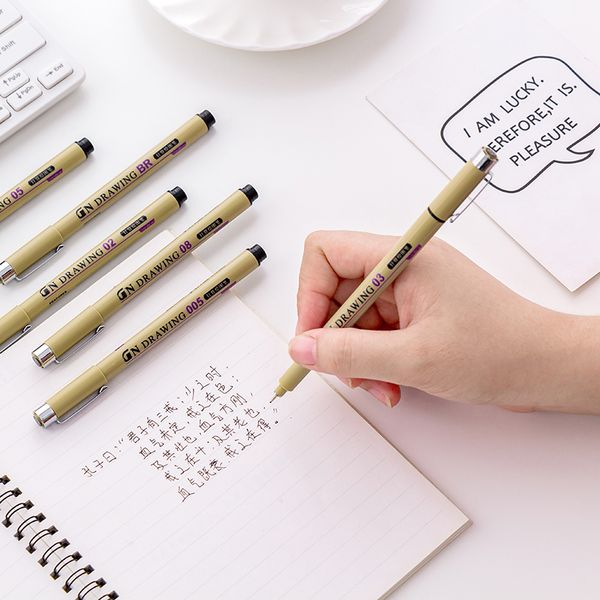 Shift
End
PgUp
PgDn
I AM LUCKY.
EREFORE,IT IS.
PLEASURE
05
DRAWING BR
DRAWING 02
DRAWING 08
DRAWING 005
DRAWING 03
孔子曰：“君子有三戒：少之时，
血气未定，戒之在色；
及其壮也，血气方刚，
戒之在斗；及其老也，
血气既衰，戒之在得。”